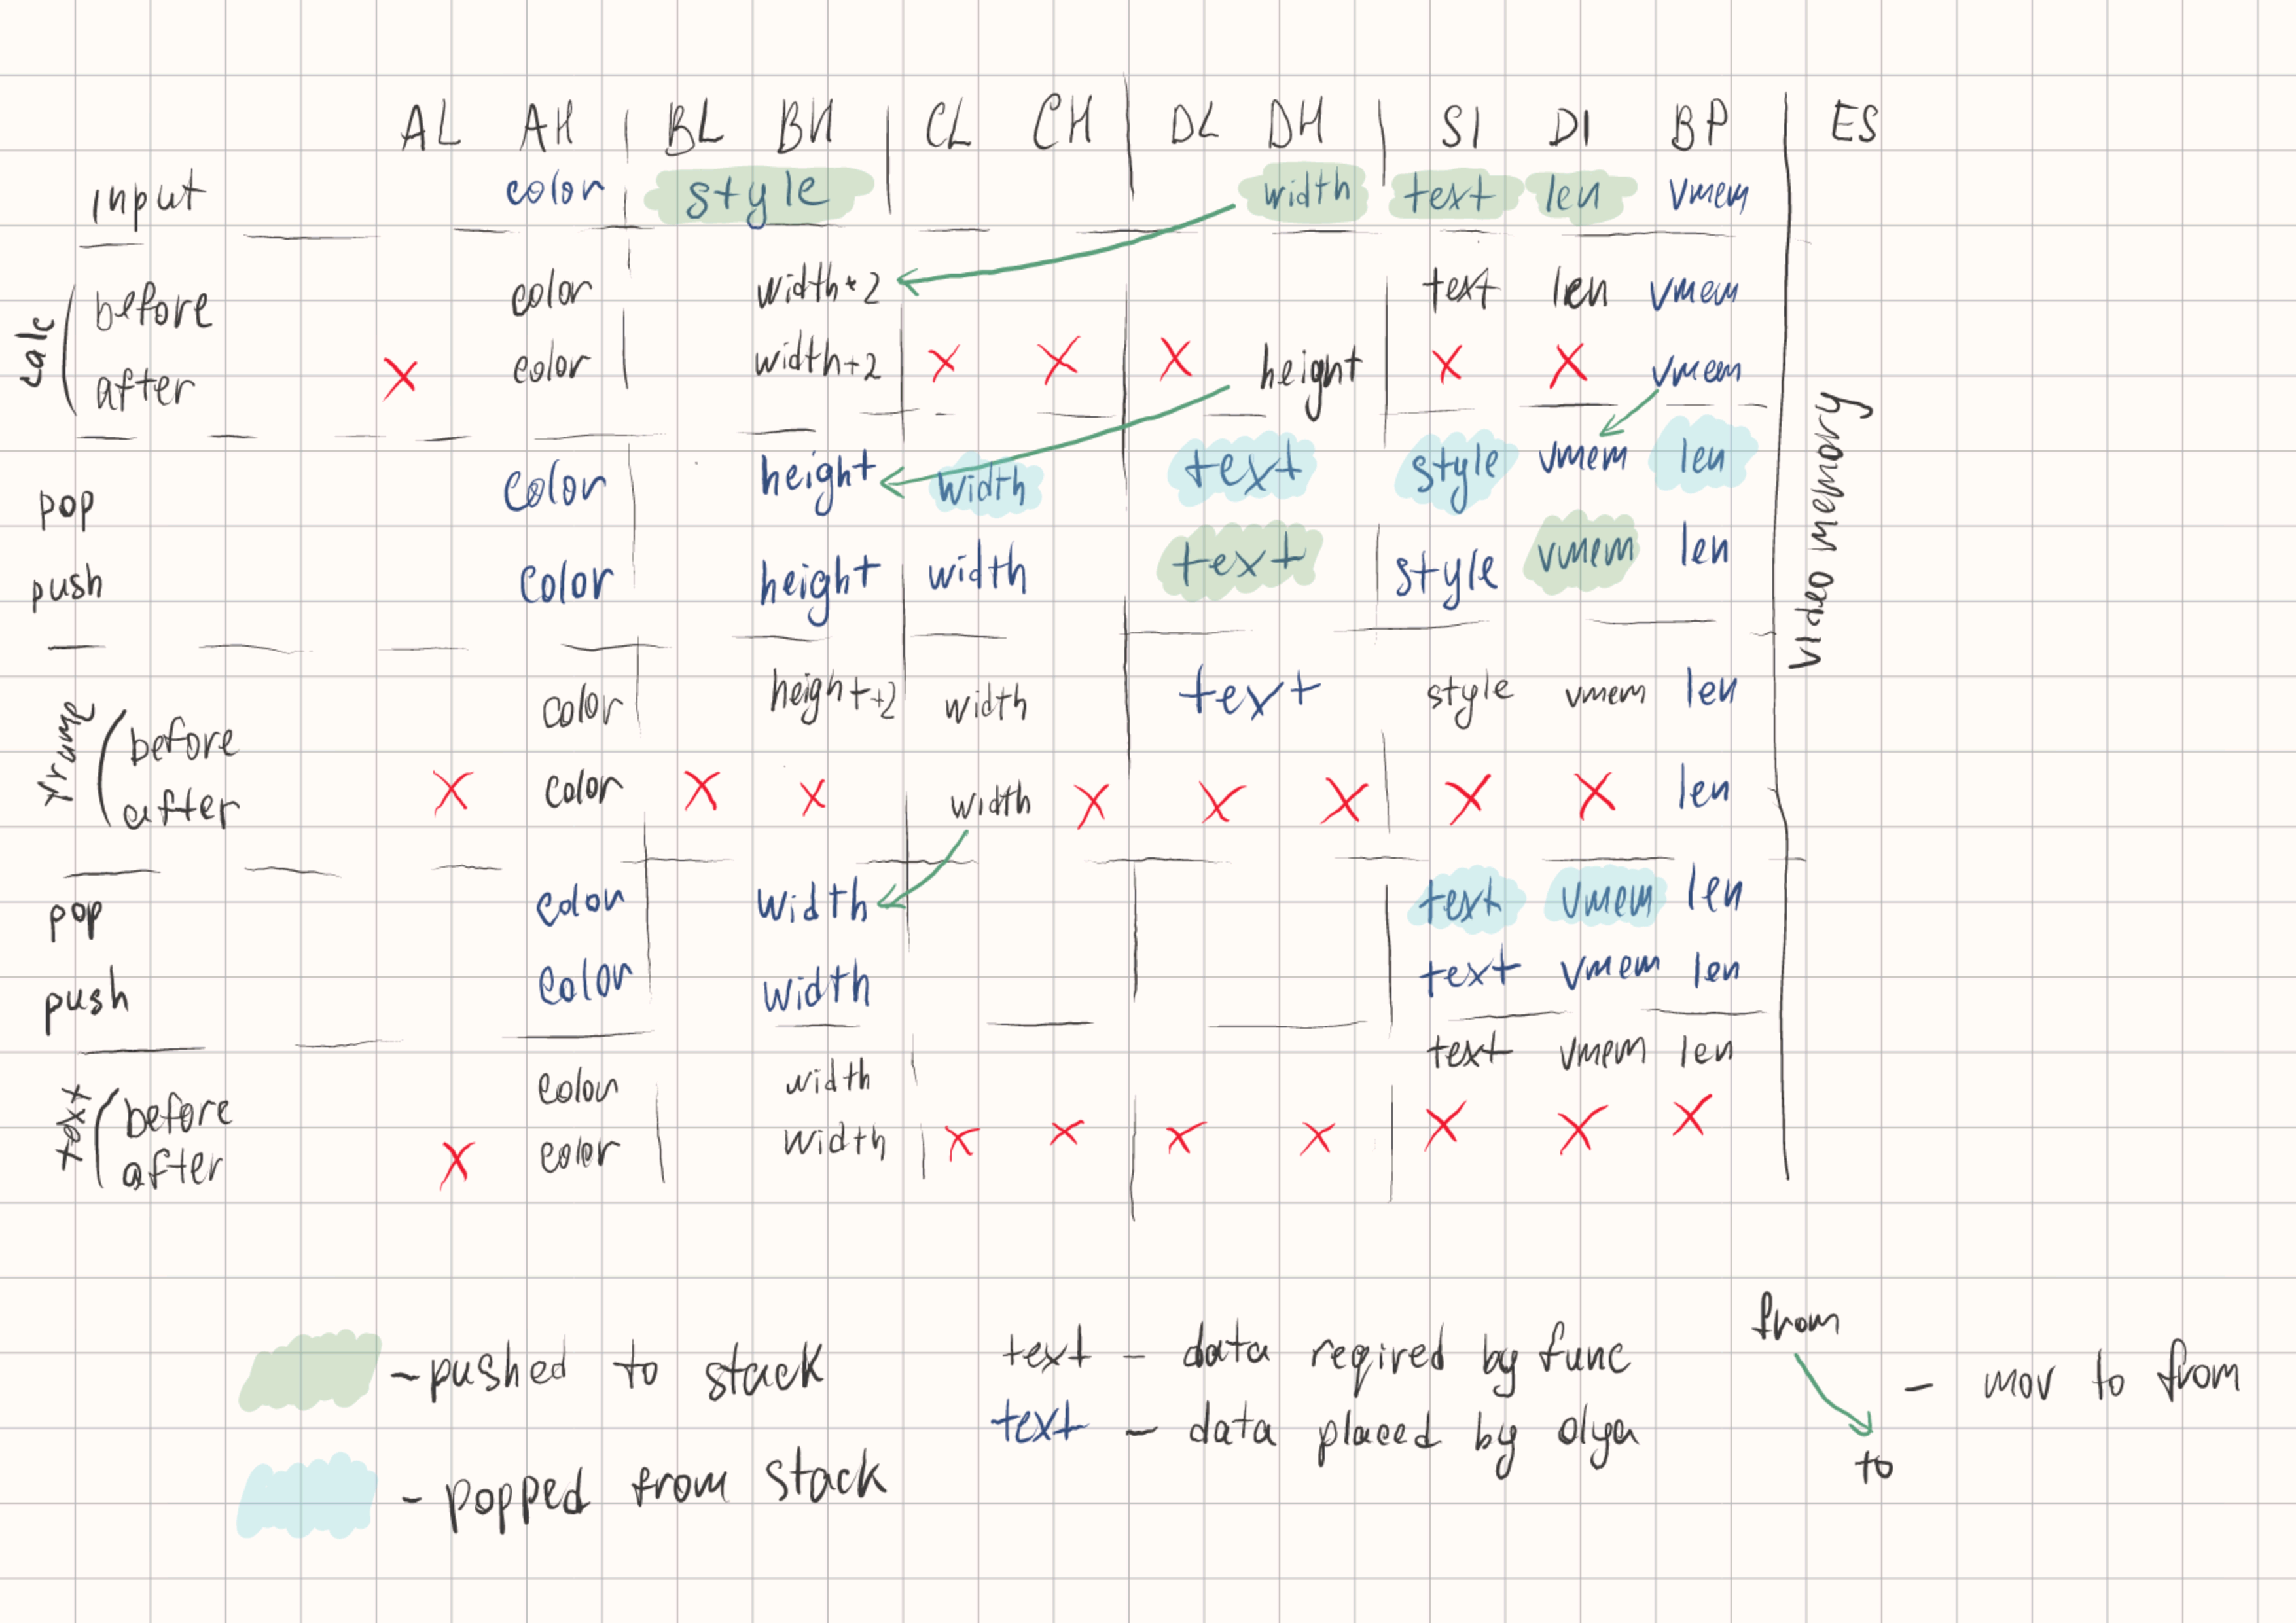 AL AH BL BH CL CH DL DH SI DI BP ES
input color style width text len vmem
calc
before color width*2 text len vmem
after X color width+2 X X X height X X vmem
pop color height width text style vmem len
push color height width text style vmem len
video memory
frame
before color height+2 width text style vmem len
after X color X X width X X X X X len
pop color width text vmem len
push color width text vmem len
text
before color width text vmem len
after X color width X X X X X X X
- pushed to stack
- popped from stack
text - data reqired by func
text - data placed by olya
from
to
- mov to from